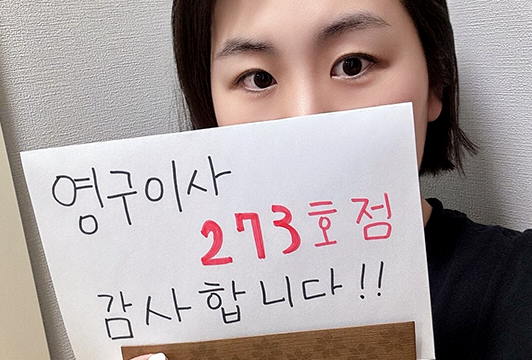 영구이사
273호점
감사합니다!!